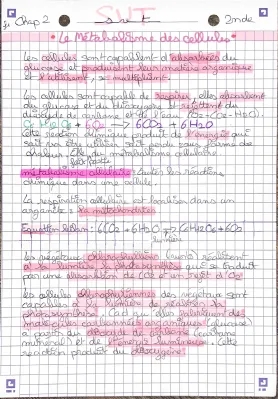 Chap 2
SVT
2nde
Le Métabolisme des cellules
Les cellules sont capables d'absorber du
glucose et produisent leur matière organique
et l'utilisent, se multiplient.
Les cellules sont capable de respirer, elles absorbent
du glucose et du dioxygène et rejettent du
dioxyde de carbone et de l'eau (CO2-H2O).
C6H12O6 + 6O2 → 6CO2 + 6H2O
Cette réaction chimique produit de l'énergie qui
sait être utilisée soit perdu sous forme de
chaleur. Elle du métabolisme cellulaire
fait partie
métabolisme cellulaire: toutes les réactions
chimique dans une cellule.
La respiration cellulaire est localisée dans un
organite: la mitochondrie
Equation bilan: 6CO2 + 6H2O → C6H12O6 + 6O2
lumière
Les végétaux chlorophylliens (verts) réalisent
à la lumière la photosynthèse qui se traduit
par une absorption de CO2 et un rejet d'O2
Les cellules chlorophylliennes des végétaux sont
capables à la lumière de réaliser la
photosynthèse. Càd qu'elles fabriquent des
matières carbonées organiques (glucose)
à partir du dioxyde de carbone (carbone
minéral) et de l'énergie lumineuse. Cette
réaction produit du dioxygène.